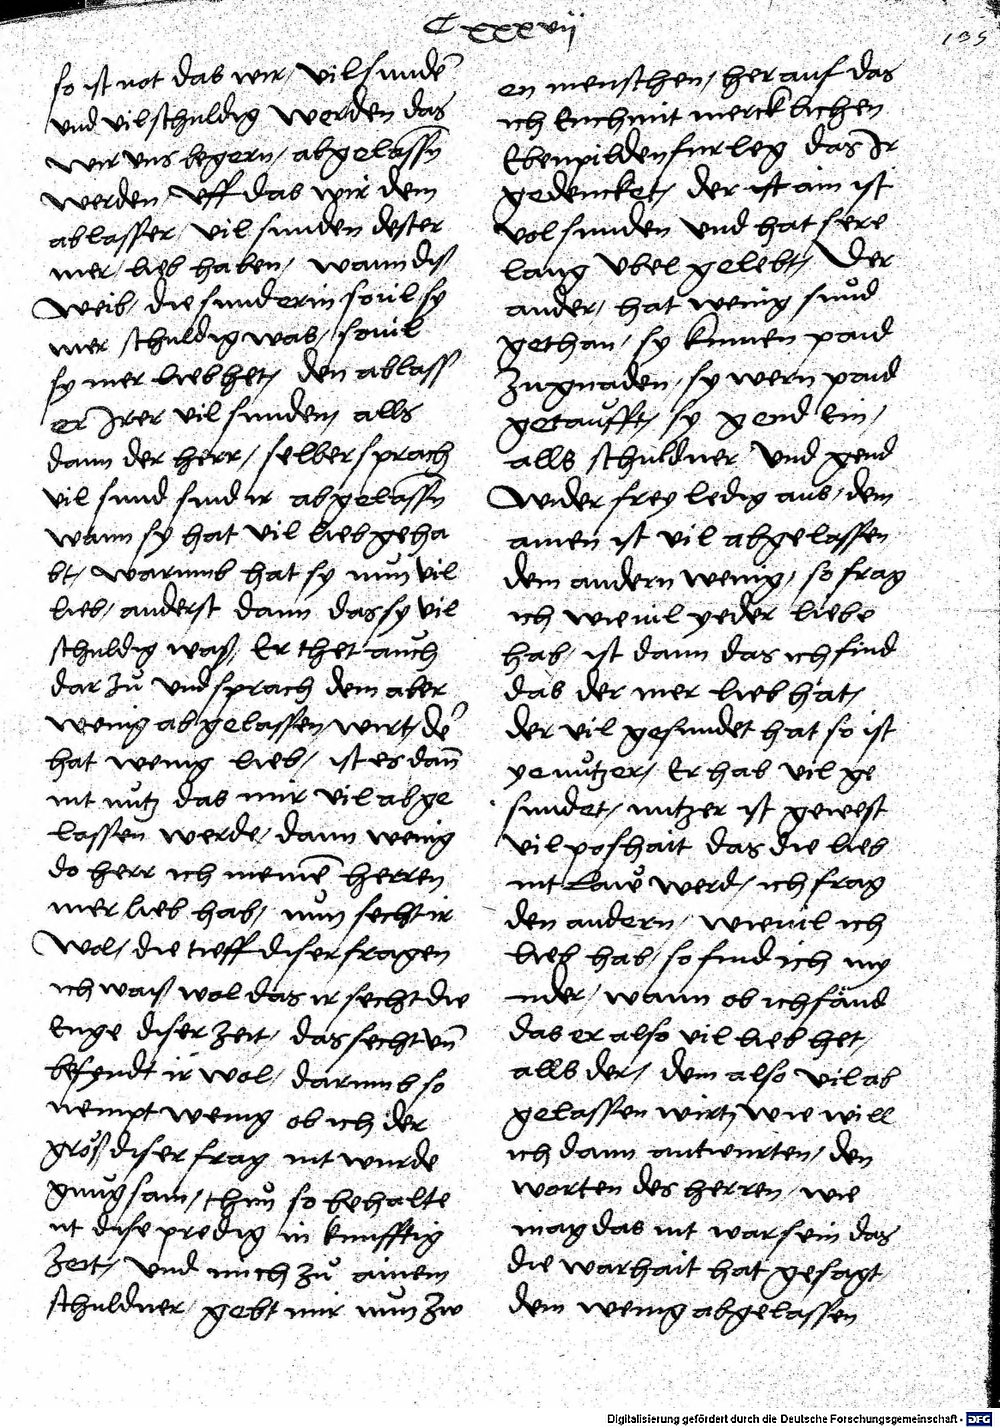 Cxxxvij
135
so ist not das wir / vil sundē
vnd vil schuldig werden das
wir vns begern / abgelassn̄
werden / vff das wir dem
ablasser / vil sunden dester
mer / lieb haben / wann diß
weib / die sunderin souil sy
mer schuldig was / souil
sy mer lieb het / den ablass
er Irer vil sunden / alls
dann der herr / selber sprach
vil sund sind ir abgelassn̄
wann sy hat vil lieb geha
bt / warumb hat sy nun vil
lieb / anderst dann das sy vil
schuldig waß / Er thet auch
dar zů vnd sprach dem aber
wenig abgelassen / wirt / dē
hat wenig lieb / ist es dan̄
nit nutz das mir vil abge
lassen werde / dann wenig
do herr ich meinē herren
mer lieb hab / nun secht ir
wol / die tieff diser fragen
ich waiß wol das ir secht die
Enge diser zeit / das secht vn̄
befyndt ir wol / darumb so
nempt wenig ob ich der
größ diser frag nit wurde
gnug sam / thun so behalte
nt dise predig in kunfftig
Zeit / vnd mich zů ainem
schuldner / gebt mir nun zw
en menschen / her auf das
ich Euch mit mercklichen
Ebenpilden furleg das Ir
gedencket / der ist ain ist
vol sunden vnd hat sere
lang vbel gelebt / Der
ander / hat wenig sund
gethan / sy kumen paid
zu gnaden / sy wern paid
getaufft / sy gend ein /
alls schuldner vnd gend
wider frey ledig aus / dem
ainen ist vil abgelassen
dem andern wenig / so frag
ich wie uil yeder liebe
hab / ist dann das ich find
das der mer lieb hat /
der vil gesundet hat so ist
ye nutzer / Er hab vil ge
sundet / nutzer ist gewest
vil poshait das die lieb
nit Lawe werd / ich frag
den andern / wie uil ich
lieb hab / so find ich my
nder / wann ob ich fand
das er also vil lieb het /
alls der / dem also vil ab
gelassen wirt / wie will
ich dann antwurten / den
worten des herren / wie
mag das nit war sein das
die warhait hat gesagt
dem wenig abgelassen
Digitalisierung gefördert durch die Deutsche Forschungsgemeinschaft - DFG